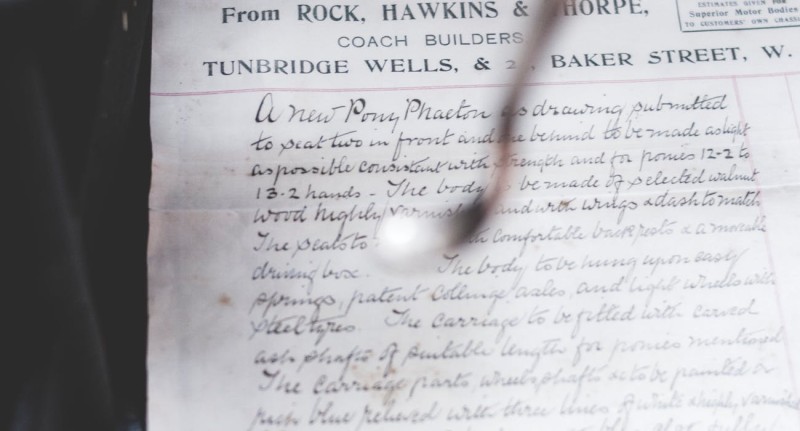 From ROCK, HAWKINS & THORPE,
COACH BUILDERS
TUNBRIDGE WELLS, & 2 , BAKER STREET, W.
ESTIMATES GIVEN FOR
Superior Motor Bodies
TO CUSTOMERS' OWN CHASSIS
A new Pony Phaeton as drawing submitted
to seat two in front and one behind to be made as light
as possible consistent with strength and for ponies 12-2 to
13-2 hands - The body to be made of selected walnut
wood highly varnished and with wings & dash to match
The seats to with comfortable back rests & a moveable
driving box. The body to be hung upon easy
springs, patent Collinge axles, and light wheels with
steel tyres. The carriage to be fitted with carved
ash shafts of suitable length for ponies mentioned
The carriage parts, wheels, shafts &c to be painted a
rich blue relieved with three lines of white & highly varnished